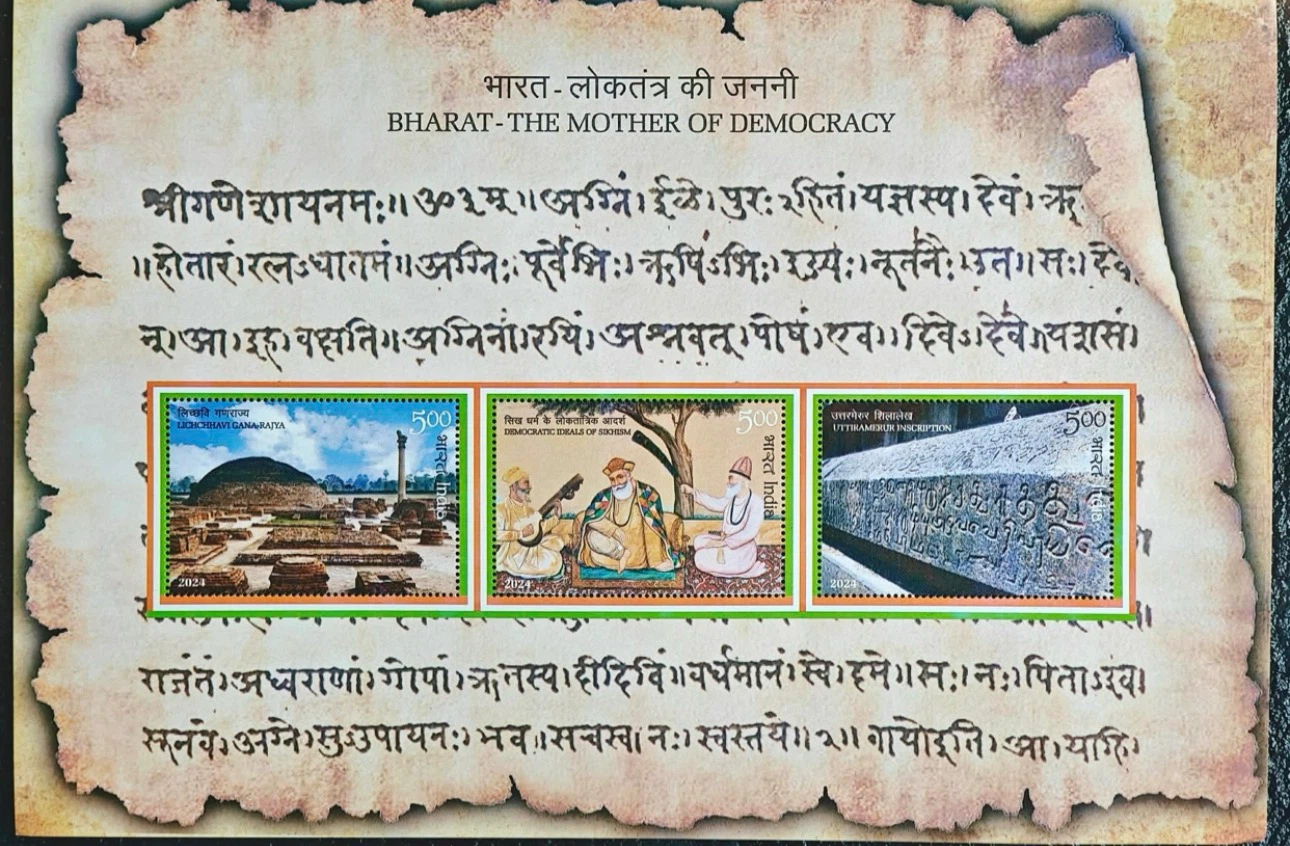 भारत - लोकतंत्र की जननी
BHARAT - THE MOTHER OF DEMOCRACY
श्रीगणेशायनमः॥ॐ३म्॥अग्निं।ईळे।पुरःऽहितं।यज्ञस्य।देवं।ऋ
॥होतारं।रत्नऽधातमं॥अग्निः।पूर्वेभिः।ऋषिऽभिः।ईड्यः।नूतनैः।उत॥सः।देवा
न्।आ।इह।वक्षति॥अग्निना।रयिं।अश्नवत्।पोषं।एव।दिवेऽदिवे।यशसं।
लिच्छवि गणराज्य
LICHCHHAVI GANA-RAJYA
500
भारत India
2024
सिख धर्म के लोकतांत्रिक आदर्श
DEMOCRATIC IDEALS OF SIKHISM
500
भारत India
2024
उत्तरमेरुर शिलालेख
UTTIRAMERUR INSCRIPTION
500
भारत India
2024
राजंतं।अध्वराणां।गोपां।ऋतस्य।दीदिविं॥वर्धमानं।स्वे।दमे॥सः।नः।पिताऽइव।
सूनवे।अग्ने।सुऽउपायनः।भव॥सचस्व।नः।स्वस्तये॥२॥वायोइति।आ।याहि।